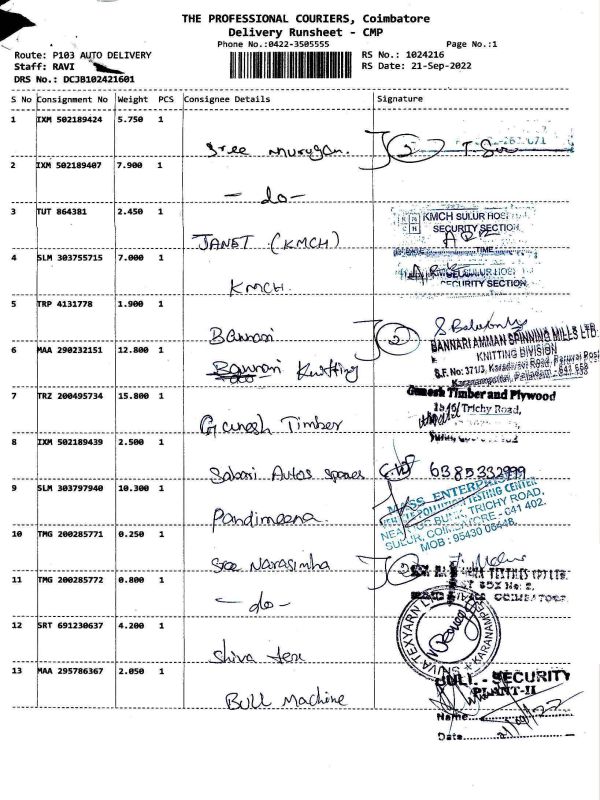 THE PROFESSIONAL COURIERS, Coimbatore
Delivery Runsheet - CMP
Phone No.:0422-3505555 Page No.:1
Route: P103 AUTO DELIVERY RS No.: 1024216
Staff: RAVI RS Date: 21-Sep-2022
DRS No.: DCJB102421601
S No Consignment No Weight PCS Consignee Details Signature
1 IXM 502189424 5.750 1
Sree Murugan. 2
2 IXM 502189407 7.900 1
- do -
3 TUT 864381 2.450 1
KMCH SULUR HOSPITAL
SECURITY SECTION
JANET (KMCH)
TIME
4 SLM 303755715 7.000 1
SULUR HOSPI
SECURITY SECTION
KMCH.
5 TRP 4131778 1.900 1
Bannari 2
BANNARI AMMAN SPINNING MILLS LTD
6 MAA 290232151 12.800 1
KNITTING DIVISION
Bannari Knitting
S.F. No: 371/3, Karadivavi Road,
7 TRZ 200495734 15.800 1
Ganesh Timber and Plywood
Trichy Road,
Ganesh Timber
8 IXM 502189439 2.500 1
Sabari Autos spares 6385332999
9 SLM 303797940 10.300 1
MASS ENTERPRISES
VEHICLE POLLUTION TESTING CENTER
NEAR BUNK, TRICHY ROAD,
SULUR, COIMBATORE - 641 402.
MOB : 95430 06448.
Pandimeena
10 TMG 200285771 0.250 1
Sree Narasimha 2
TEXTILES (P) LTD.
11 TMG 200285772 0.800 1
BOX No: 2,
COIMBATORE.
- do -
12 SRT 691230637 4.200 1
SHIVA TEXYARN LTD
KARANAMPET
Shiva tex
13 MAA 295786367 2.050 1
BULL - SECURITY
PLANT-II
Bull Machine
Name
Date